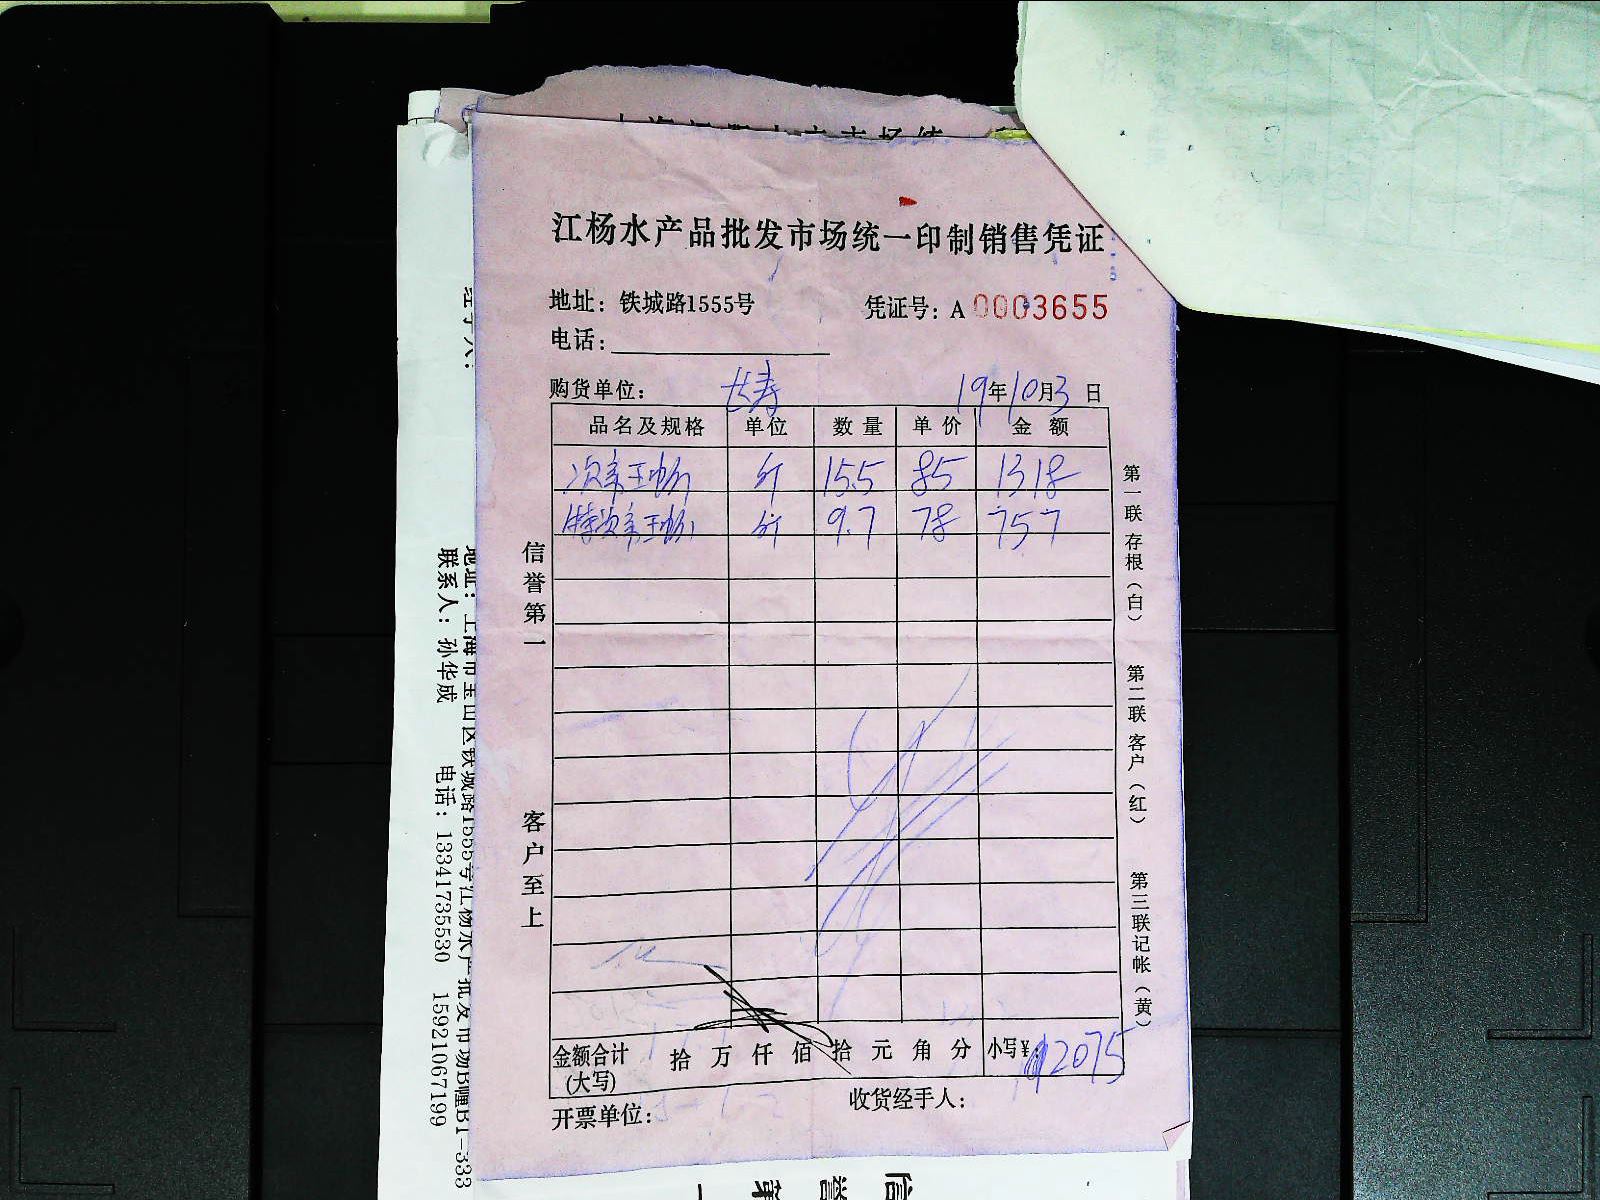 江杨水产品批发市场统一印制销售凭证
地址：铁城路1555号 凭证号：A 0003655
电话：
购货单位： 长寿 19年10月3日
品名及规格 单位 数量 单价 金额
斤 15.5 85 1318
斤 9.7 78 757
金额合计(大写) 拾 万 仟 佰 拾 元 角 分 小写¥：2075
开票单位： 收货经手人：
信誉第一
客户至上
第一联 存根（白）
第二联 客户（红）
第三联记帐（黄）
地址：上海市宝山区铁城路1555号江杨水产批发市场B幢B1-333
联系人：孙华成 电话：13341735530 15921067199
信誉第一